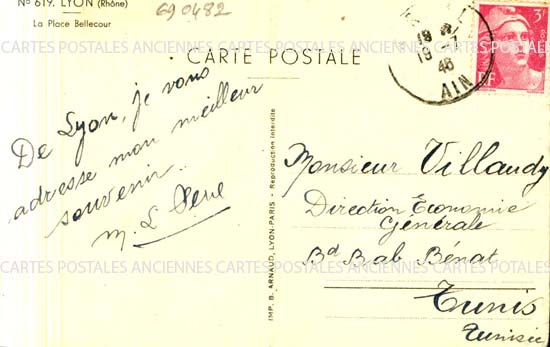 No 619. LYON (Rhône)
La Place Bellecour
690482
CARTE POSTALE
3F
RF
19
19
46
AIN
De Lyon, je vous
adresse mon meilleur
souvenir..
M. L
IMP. B. ARNAUD, LYON-PARIS - Reproduction interdite
Monsieur Villaudy
Direction Economie
Générale
Bd Bab Bénat
Tunis
Tunisie
CARTES POSTALES ANCIENNES CARTES POSTALES ANCIENNES CARTES POSTALES
CARTES POSTALES ANCIENNES CARTES POSTALES ANCIENNES CARTES POTALES